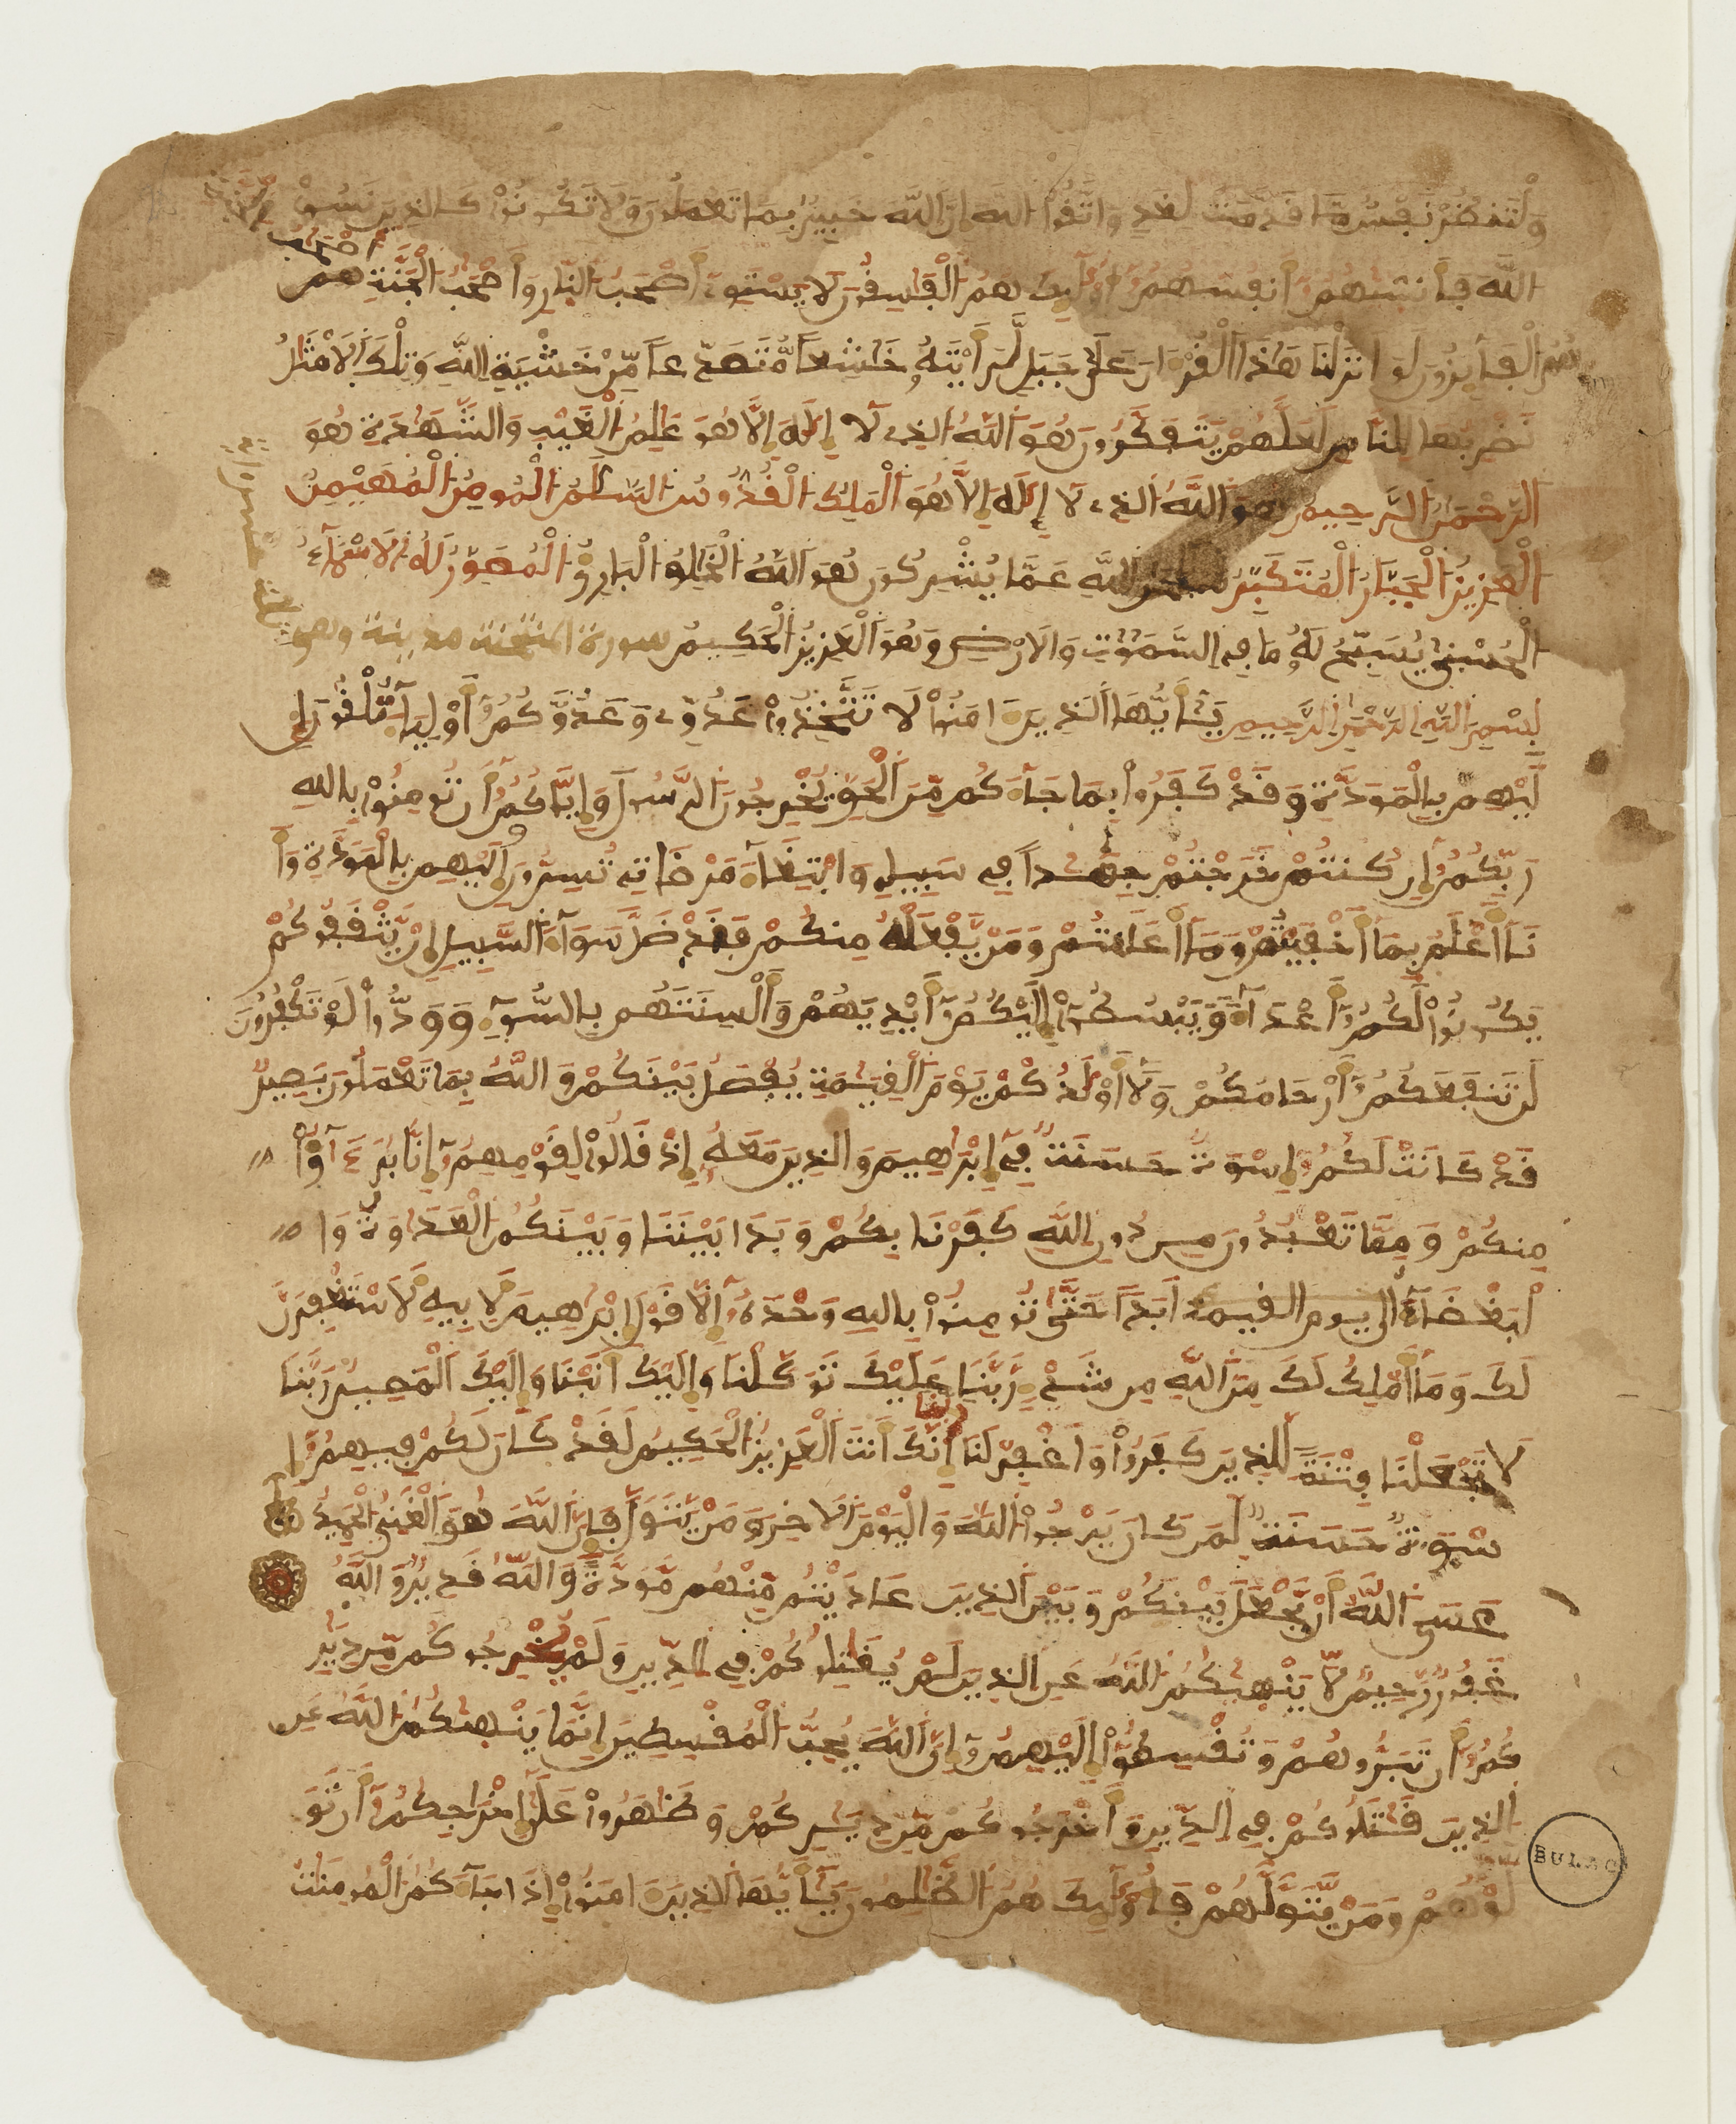 وَلْتَنظُرْ نَفْسٌ مَّا قَدَّمَتْ لِغَدٍ وَاتَّقُوا اللَّهَ إِنَّ اللَّهَ خَبِيرٌ بِمَا تَعْمَلُونَ وَلَا تَكُونُوا كَالذِينَ نَسُوا
اللَّهَ فَأَنسَاهُمُ أَنفُسَهُمُ أُوْلَٰئِكَ هُمُ الْفَاسِقُونَ لَا يَسْتَوِي أَصْحَٰبُ النَّارِ وَأَصْحَٰبُ الْجَنَّةِ أَصْحَٰبُ الْجَنَّةِ هُمُ
الْفَائِزُونَ لَوْ أَنزَلْنَا هَٰذَا الْقُرْءَانَ عَلَىٰ جَبَلٍ لَّرَأَيْتَهُ خَٰشِعًا مُّتَصَدِّعًا مِّنْ خَشْيَةِ اللَّهِ وَتِلْكَ الَامْثَٰلُ
نَضْرِبُهَا لِلنَّاسِ لَعَلَّهُمْ يَتَفَكَّرُونَ هُوَ اللَّهُ الذِي لَا إِلَٰهَ إِلَّا هُوَ عَٰلِمُ الْغَيْبِ وَالشَّهَٰدَةِ هُوَ
الرَّحْمَٰنُ الرَّحِيمُ هُوَ اللَّهُ الذِي لَا إِلَٰهَ إِلَّا هُوَ الْمَلِكُ الْقُدُّوسُ السَّلَٰمُ الْمُومِنُ الْمُهَيْمِنُ
الْعَزِيزُ الْجَبَّارُ الْمُتَكَبِّرُ سُبْحَٰنَ اللَّهِ عَمَّا يُشْرِكُونَ هُوَ اللَّهُ الْخَٰلِقُ الْبَارِئُ الْمُصَوِّرُ لَهُ الَاسْمَاءُ
الْحُسْنَىٰ يُسَبِّحُ لَهُ مَا فِي السَّمَٰوَٰتِ وَالَارْضِ وَهُوَ الْعَزِيزُ الْحَكِيمُ سورة الممتحنة مدينة وهي
بِسْمِ اللَّهِ الرَّحْمَٰنِ الرَّحِيمِ يَٰأَيُّهَا الذِينَ ءَامَنُوا لَا تَتَّخِذُوا عَدُوِّي وَعَدُوَّكُمُ أَوْلِيَاءَ تُلْقُونَ إِ
لَيْهِم بِالْمَوَدَّةِ وَقَدْ كَفَرُوا بِمَا جَاءَكُم مِّنَ الْحَقِّ يُخْرِجُونَ الرَّسُولَ وَإِيَّاكُمُ أَن تُومِنُوا بِاللَّهِ
رَبِّكُمُ إِن كُنتُمْ خَرَجْتُمْ جِهَٰدًا فِي سَبِيلِي وَابْتِغَاءَ مَرْضَاتِي تُسِرُّونَ إِلَيْهِم بِالْمَوَدَّةِ وَأَ
نَا أَعْلَمُ بِمَا أَخْفَيْتُمْ وَمَا أَعْلَنتُمْ وَمَنْ يَّفْعَلْهُ مِنكُمْ فَقَد ضَّلَّ سَوَاءَ السَّبِيلِ إِنْ يَّثْقَفُوكُمْ
يَكُونُوا لَكُمُ أَعْدَاءً وَيَبْسُطُوا إِلَيْكُمُ أَيْدِيَهُمْ وَأَلْسِنَتَهُم بِالسُّوءِ وَوَدُّوا لَوْ تَكْفُرُونَ
لَن تَنفَعَكُمُ أَرْحَامُكُمْ وَلَا أَوْلَٰدُكُمْ يَوْمَ الْقِيَٰمَةِ يُفْصَلُ بَيْنَكُمْ وَاللَّهُ بِمَا تَعْمَلُونَ بَصِيرٌ
قَدْ كَانَتْ لَكُمُ إِسْوَةٌ حَسَنَةٌ فِي إِبْرَٰهِيمَ وَالذِينَ مَعَهُ إِذْ قَالُوا لِقَوْمِهِمُ إِنَّا بُرَءَٰؤُا
مِنكُمْ وَمِمَّا تَعْبُدُونَ مِن دُونِ اللَّهِ كَفَرْنَا بِكُمْ وَبَدَا بَيْنَنَا وَبَيْنَكُمُ الْعَدَٰوَةُ وَا
لْبَغْضَاءُ الى يوم القيمة أَبَدًا حَتَّىٰ تُومِنُوا بِاللَّهِ وَحْدَهُ إِلَّا قَوْلَ إِبْرَٰهِيمَ لِأَبِيهِ لَأَسْتَغْفِرَنَّ
لَكَ وَمَا أَمْلِكُ لَكَ مِنَ اللَّهِ مِن شَيْءٍ رَّبَّنَا عَلَيْكَ تَوَكَّلْنَا وَإِلَيْكَ أَنَبْنَا وَإِلَيْكَ الْمَصِيرُ رَبَّنَا
لَا تَجْعَلْنَا فِتْنَةً لِّلذِينَ كَفَرُوا وَاغْفِرْ لَنَا رَبَّنَا إِنَّكَ أَنتَ الْعَزِيزُ الْحَكِيمُ لَقَدْ كَانَ لَكُمْ فِيهِمُ إِ
سْوَةٌ حَسَنَةٌ لِّمَن كَانَ يَرْجُوا اللَّهَ وَالْيَوْمَ الَاخِرَ وَمَنْ يَّتَوَلَّ فَإِنَّ اللَّهَ هُوَ الْغَنِيُّ الْحَمِيدُ
عَسَى اللَّهُ أَنْ يَّجْعَلَ بَيْنَكُمْ وَبَيْنَ الذِينَ عَادَيْتُم مِّنْهُم مَّوَدَّةً وَاللَّهُ قَدِيرٌ وَاللَّهُ
غَفُورٌ رَّحِيمٌ لَّا يَنْهَٰكُمُ اللَّهُ عَنِ الذِينَ لَمْ يُقَٰتِلُوكُمْ فِي الدِّينِ وَلَمْ يُخْرِجُوكُم مِّن دِيَٰرِ
كُمُ أَن تَبَرُّوهُمْ وَتُقْسِطُوا إِلَيْهِمُ إِنَّ اللَّهَ يُحِبُّ الْمُقْسِطِينَ إِنَّمَا يَنْهَٰكُمُ اللَّهُ عَنِ
الذِينَ قَٰتَلُوكُمْ فِي الدِّينِ وَأَخْرَجُوكُم مِّن دِيَٰرِكُمْ وَظَٰهَرُوا عَلَىٰ إِخْرَاجِكُمُ أَن تَوَ
لَّوْهُمْ وَمَنْ يَّتَوَلَّهُمْ فَأُوْلَٰئِكَ هُمُ الظَّٰلِمُونَ يَٰأَيُّهَا الذِينَ ءَامَنُوا إِذَا جَاءَكُمُ الْمُومِنَٰتُ
BULAC